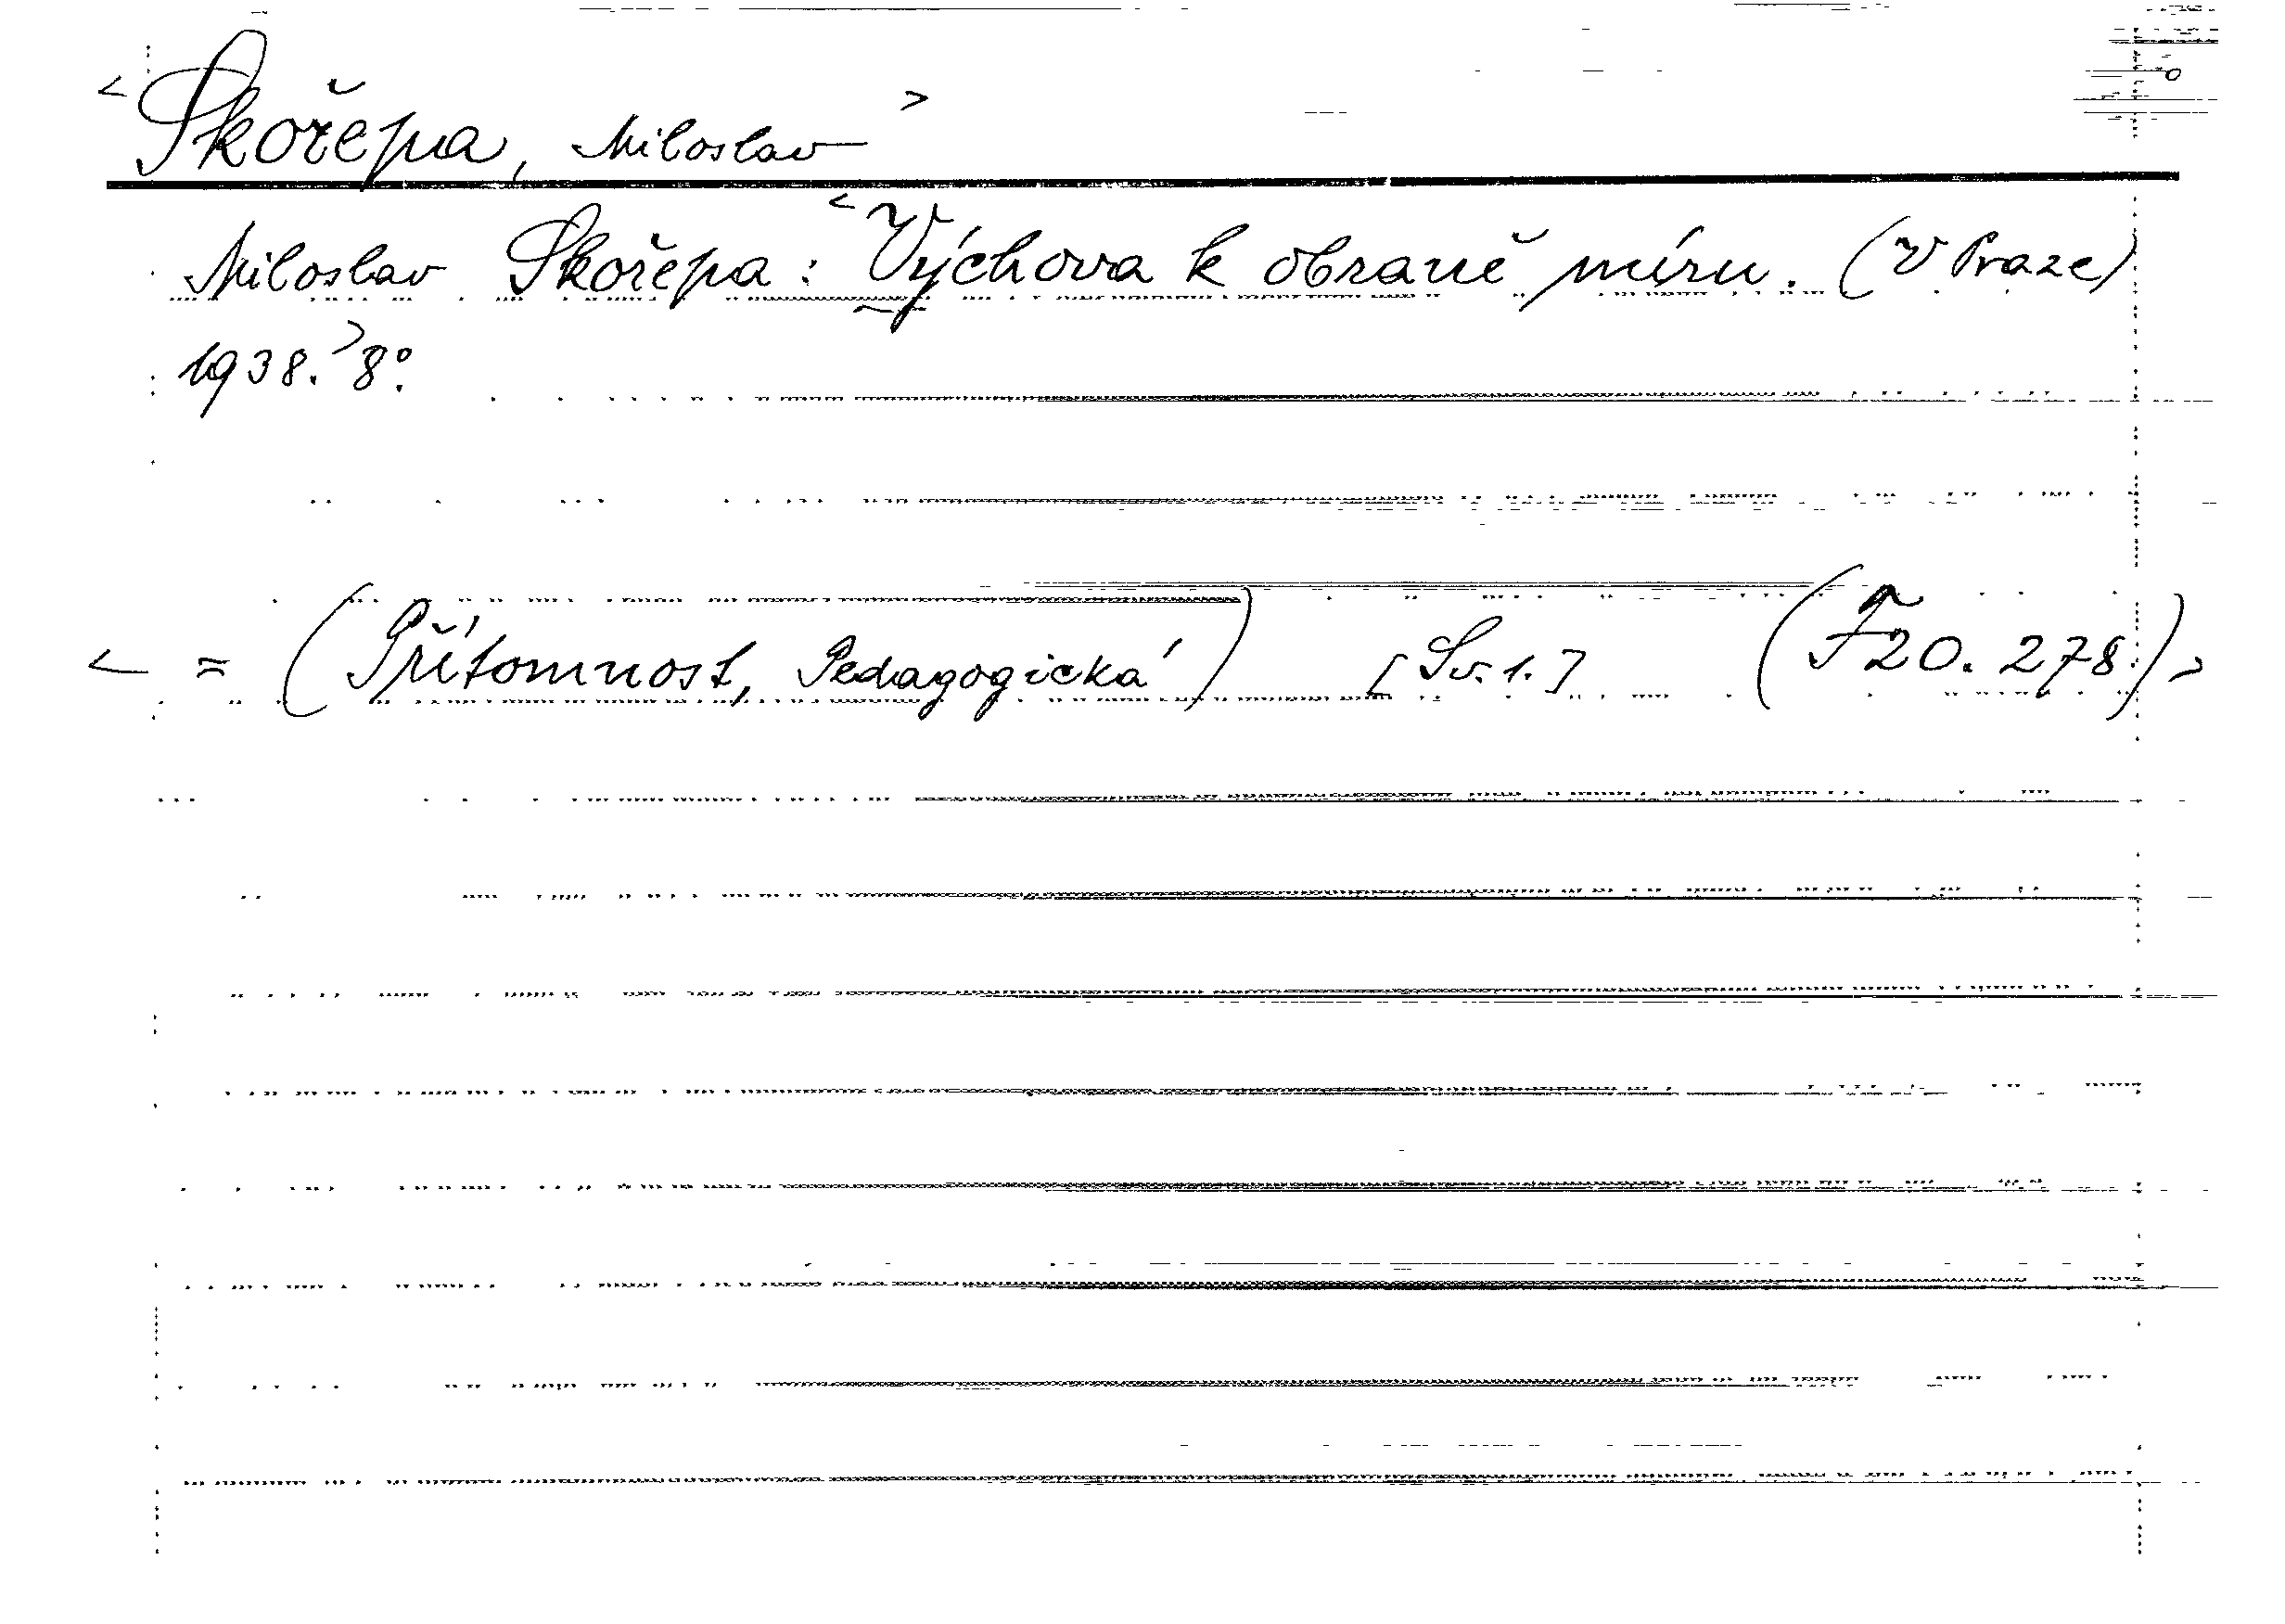 < Skořepa, Miloslav >
Miloslav Skořepa: < Výchova k obraně míru. (V Praze)
1938. > 8°.
< = (Přítomnost, Pedagogická) [Sv. 1.] (F 20. 278.) >